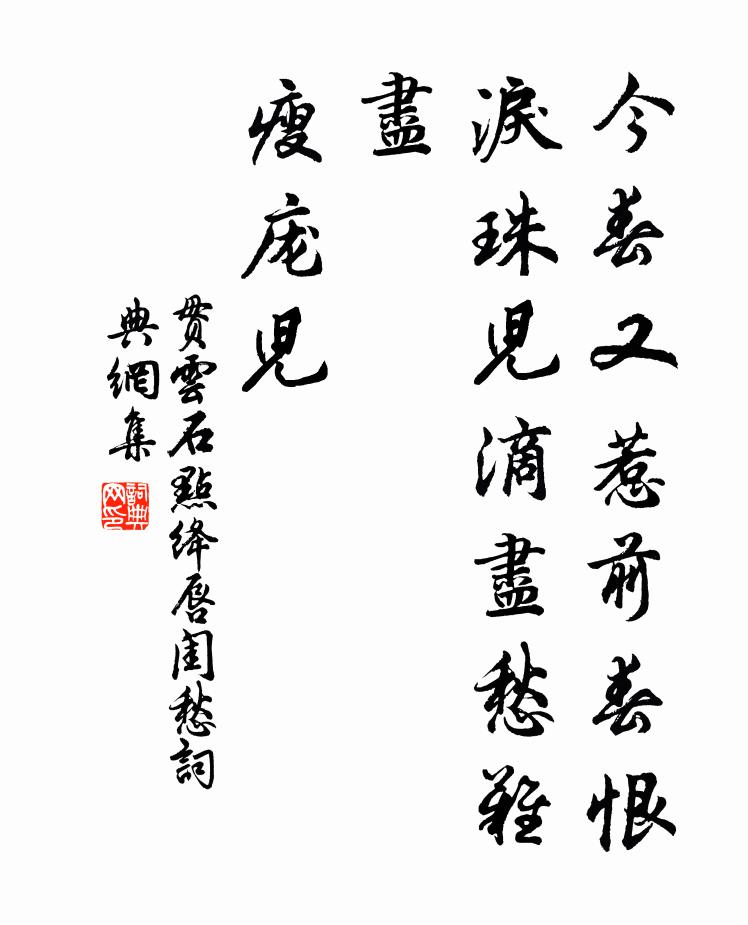 今春又惹前春恨
淚珠兒滴盡愁難
盡
瘦庞兒
贯雲石點绛唇閨愁詞
典網集
詞典
网印